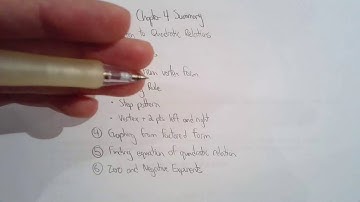 Chapter 4 Summary
to Quadratic Relations
vertex form
Rule
• Step pattern
• Vertex + 2 pts left and right
④ Graphing from factored form
⑤ Finding equation of quadratic relation
⑥ Zero and Negative Exponents